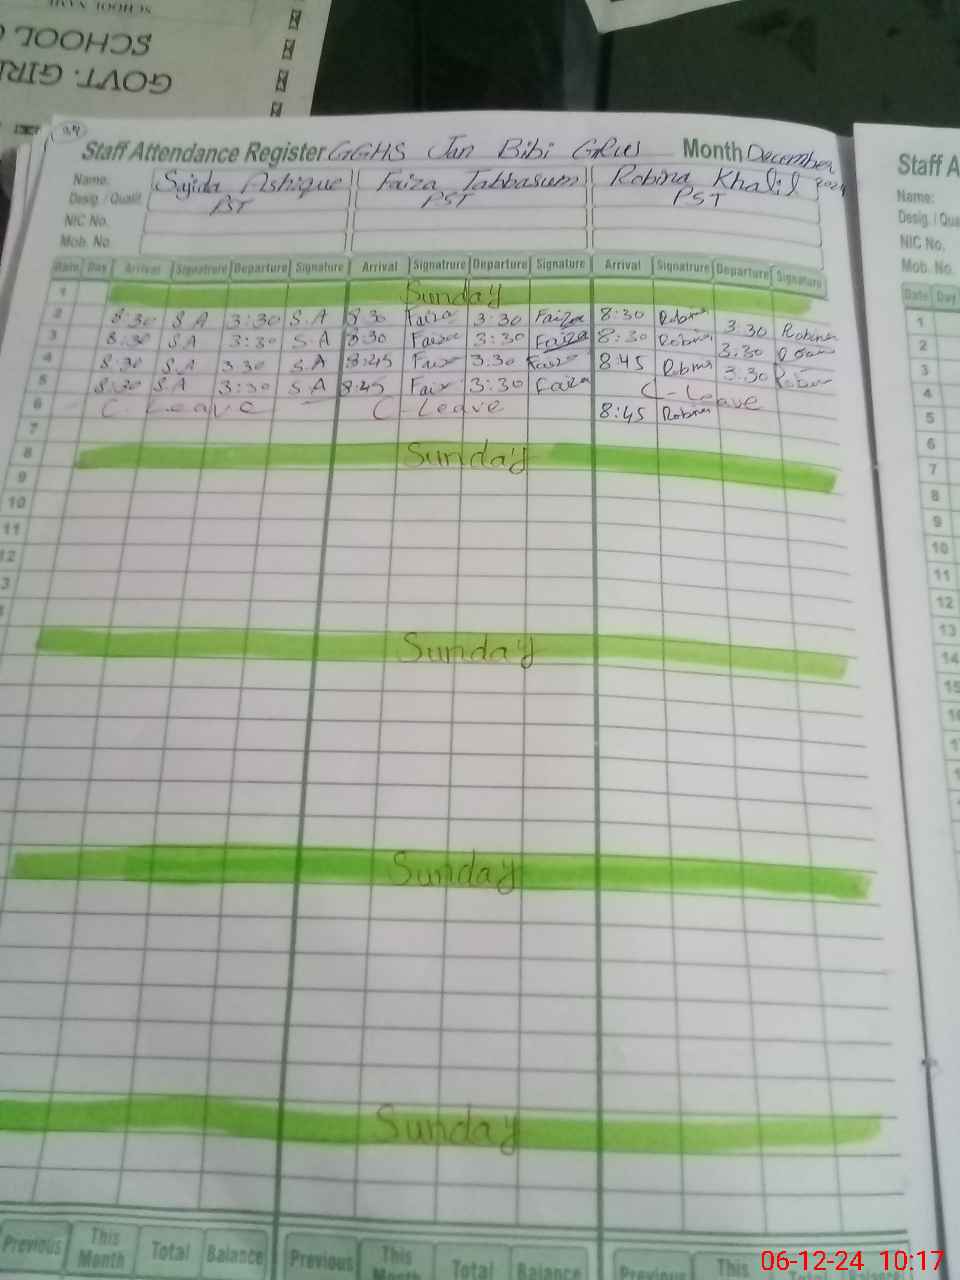 SCHOOL NAM
SCHOOL
GOVT. GIRL
24
Staff Attendance Register GGHS Jan Bibi Month December 2024
Name: Sajida Ashique Faiza Tabbasum Robina Khalil
Desig. / Qualif. PST PST PST
NIC No.
Mob. No.
Date Day Arrival Signatrure Departure Signature Arrival Signatrure Departure Signature Arrival Signatrure Departure Signature
1 Sunday
2 8:30 S.A 3:30 S.A 8:30 Faiza 3:30 Faiza 8:30 Robina 3:30 Robina
3 8:30 S.A 3:30 S.A 8:30 Faiza 3:30 Faiza 8:30 Robina 3:30
4 8:30 S.A 3:30 S.A 8:45 Faiza 3:30 Faiza 8:45 Robina 3:30 Robina
5 8:30 S.A 3:30 S.A 8:45 Faiza 3:30 Faiza C-Leave
6 C-Leave C-Leave 8:45 Robina
7
8 Sunday
9
10
11
12
3
Sunday
Sunday
Sunday
Previous This Month Total Balance Previous This Month Total Balance Previous This
Staff A
Name:
Desig. / Qua
NIC No.
Mob. No.
Date Day
1
2
3
4
5
6
7
8
9
10
11
12
13
14
15
16
06-12-24 10:17